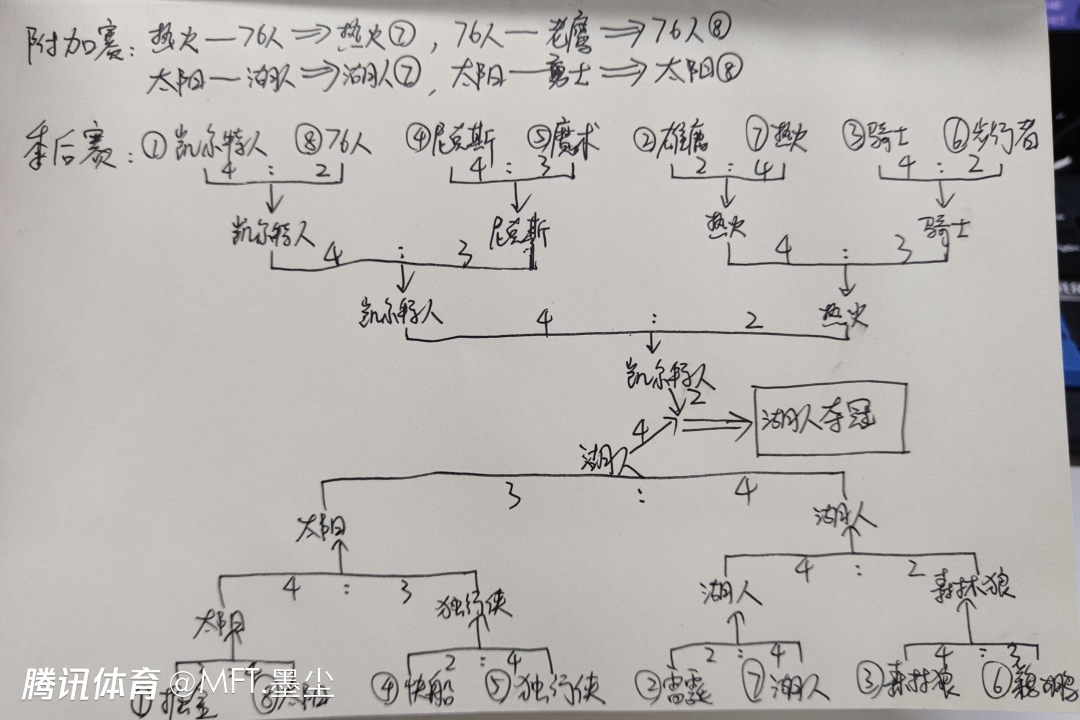 附加赛：热火—76人⇒热火⑦，76人—老鹰⇒76人⑧
太阳—湖人⇒湖人⑦，太阳—勇士⇒太阳⑧
季后赛：①凯尔特人 ⑧76人 ④尼克斯 ⑤魔术 ②雄鹿 ⑦热火 ③骑士 ⑥步行者
4 : 2 4 : 3 2 : 4 4 : 2
凯尔特人 尼克斯 热火 骑士
4 : 3 4 : 3
凯尔特人 热火
4 : 2
凯尔特人
2
4
湖人夺冠
湖人
3 : 4
太阳 湖人
4 : 3 4 : 2
太阳 独行侠 湖人 森林狼
2 : 4 2 : 4 4 : 3
④快船 ⑤独行侠 ②雷霆 ⑦湖人 ③森林狼 ⑥
腾讯体育 @MFT.墨尘